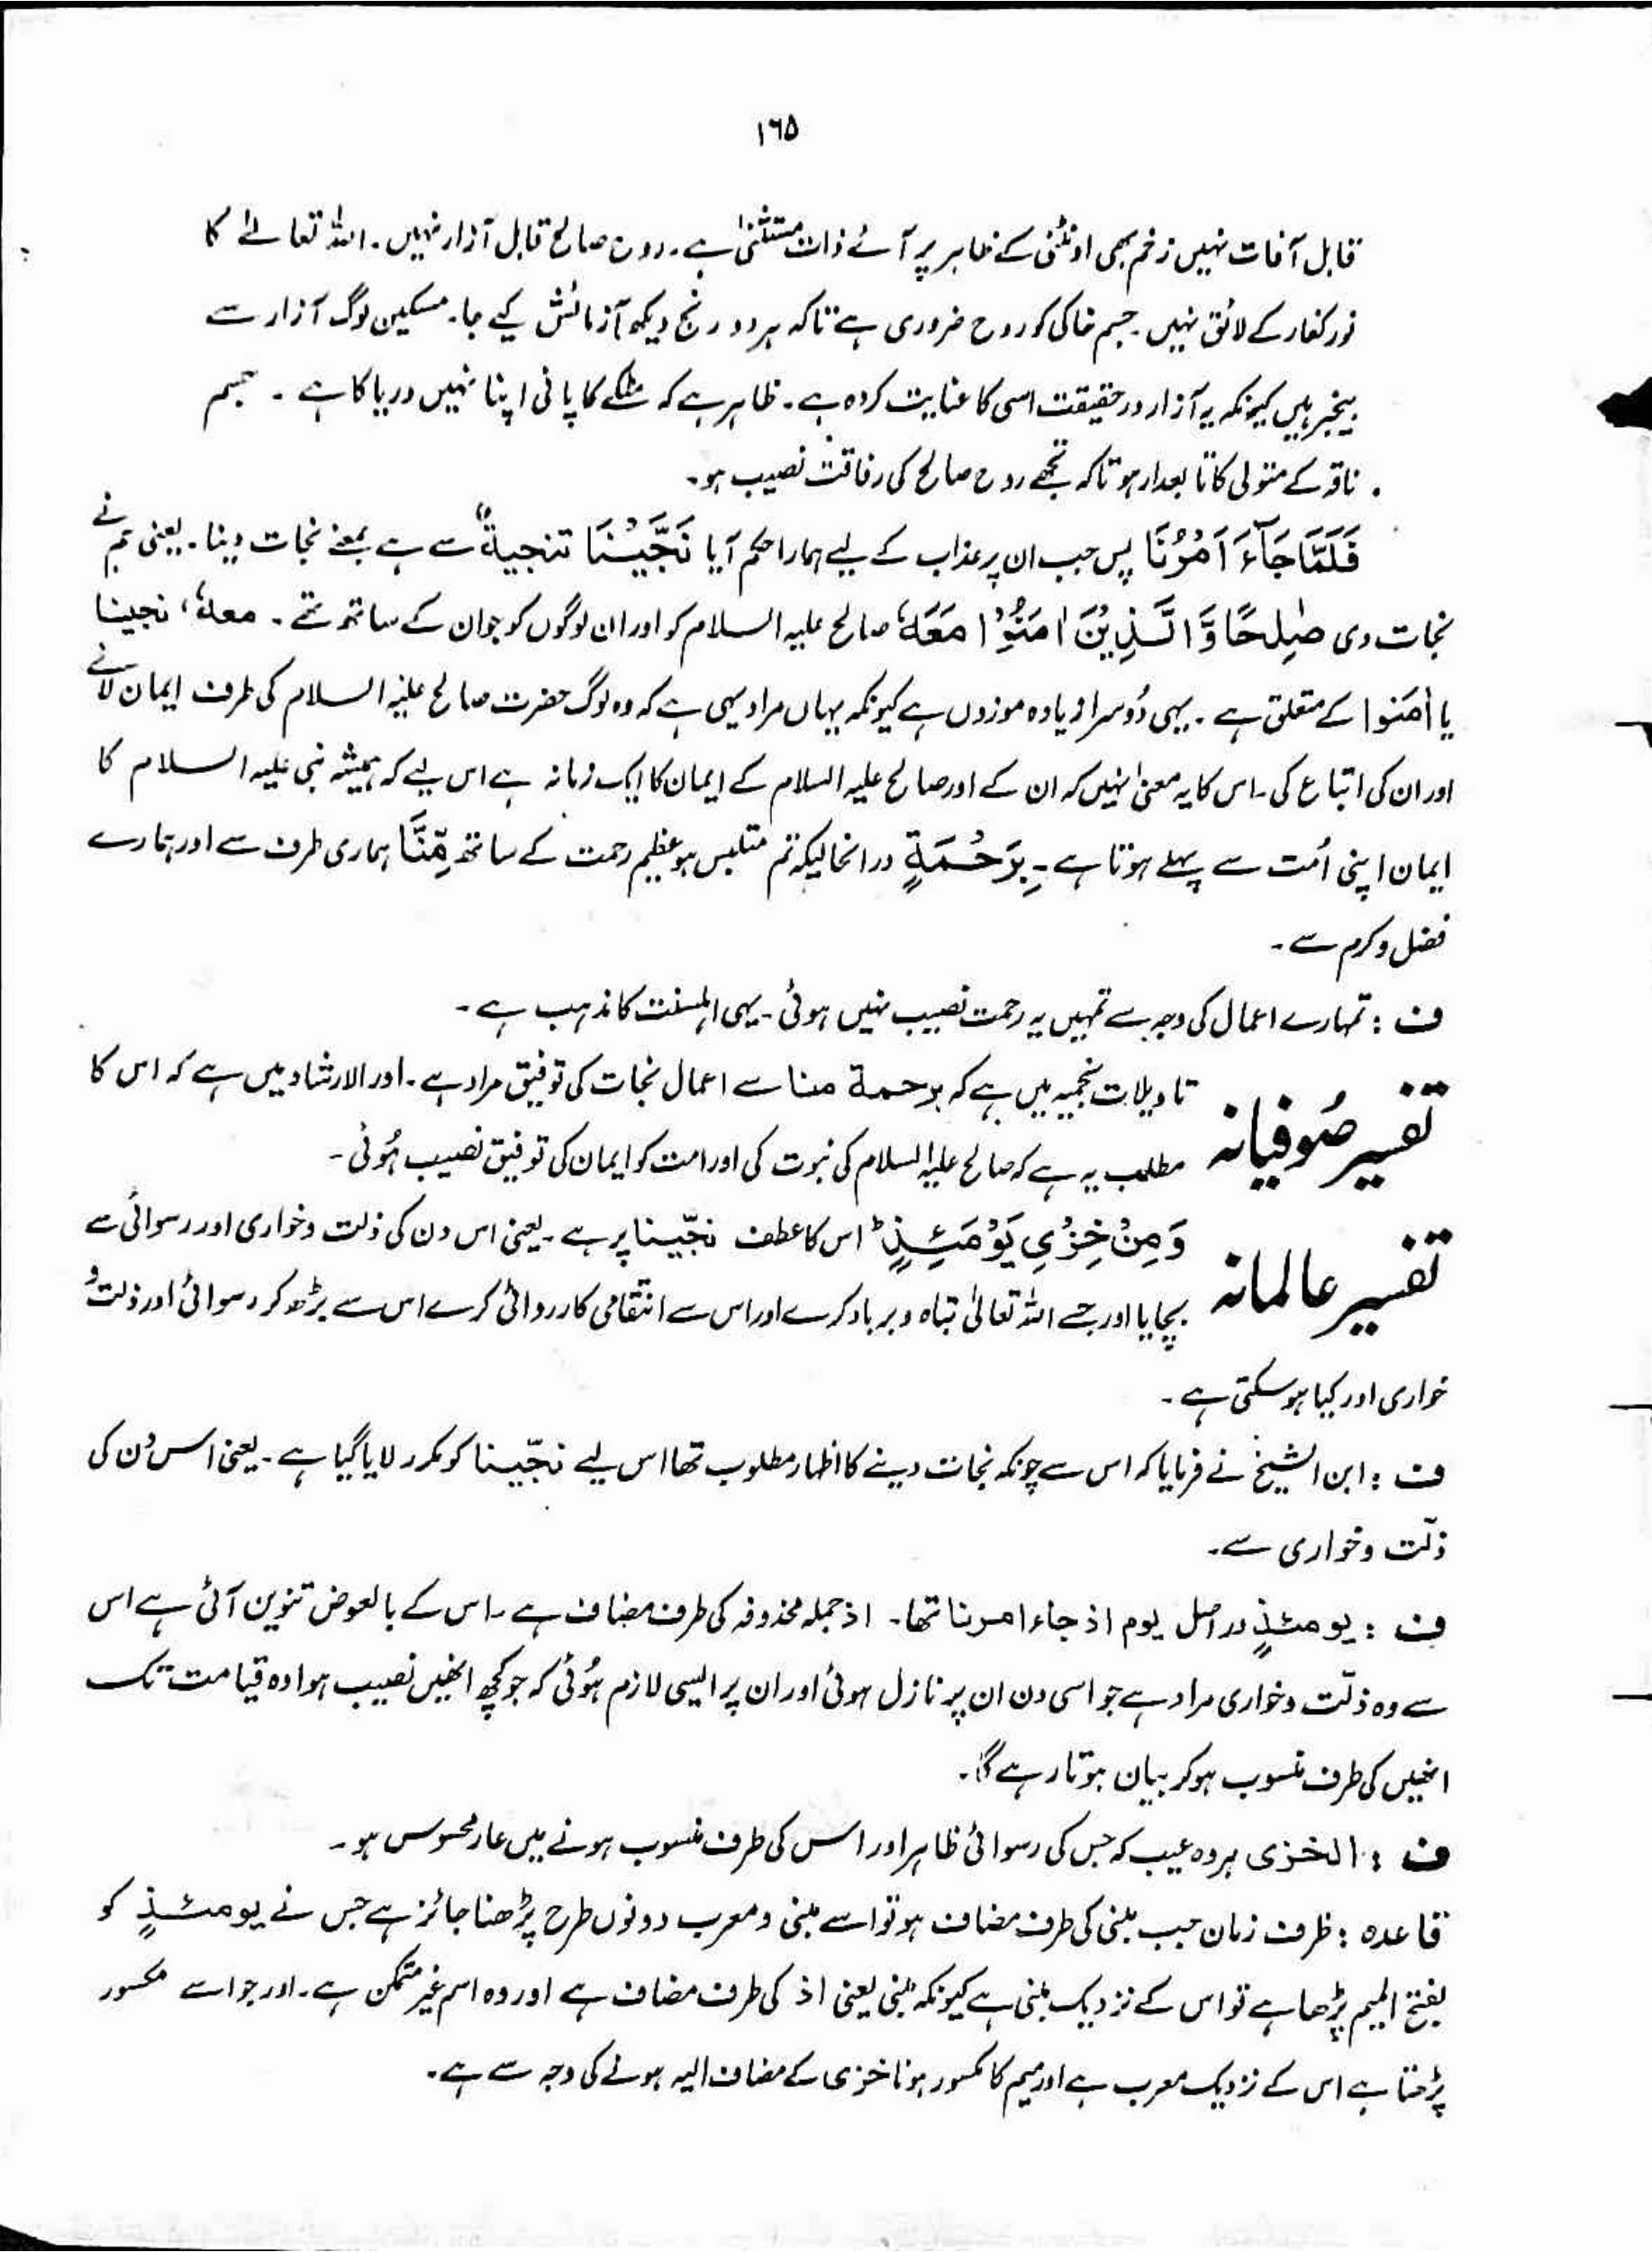 ۱۶۵
قابل آفات نہیں زخم بھی اونٹنی کے ظاہر پر آئے ذات مستثنیٰ ہے۔ روح صالح قابل آزار نہیں۔ اللہ تعالےٰ کا
نور کفار کے لائق نہیں۔ جسم خاکی کو روح ضروری ہے تاکہ ہر دو رنج دیکھ آزمائش کیے جا۔ مسکین لوگ آزار سے
بیخبر ہیں کیونکہ یہ آزار درحقیقت اسی کا عنایت کردہ ہے۔ ظاہر ہے کہ مٹکے کا پانی اپنا نہیں دریا کا ہے ۔ جسم
ناقہ کے متولی کا تابعدار ہو تاکہ تجھے روح صالح کی رفاقت نصیب ہو۔
فَلَمَّا جَآءَ اَمْرُنَا پس جب ان پر عذاب کے لیے ہمارا حکم آیا نَجَّيْنَا تنجیۃٌ سے ہے بمعنے نجات دینا۔ یعنی ہم نے
نجات دی صٰلِحًا وَّالَّذِيْنَ اٰمَنُوْا مَعَهٗ صالح علیہ السلام کو اور ان لوگوں کو جو ان کے ساتھ تھے ۔ معهٗ، نجینا
یا اٰمنوا کے متعلق ہے ۔ یہی دُوسرا زیادہ موزوں ہے کیونکہ یہاں مراد یہی ہے کہ وہ لوگ حضرت صالح علیہ السلام کی طرف ایمان لائے
اور ان کی اتباع کی۔ اس کا یہ معنیٰ نہیں کہ ان کے اور صالح علیہ السلام کے ایمان کا ایک زمانہ ہے اس لیے کہ ہمیشہ نبی علیہ السلام کا
ایمان اپنی اُمت سے پہلے ہوتا ہے ۔ بِرَحْمَةٍ درانحالیکہ تم متلبس ہو عظیم رحمت کے ساتھ مِّنَّا ہماری طرف سے اور ہمارے
فضل و کرم سے ۔
ف : تمہارے اعمال کی وجہ سے تمہیں یہ رحمت نصیب نہیں ہوئی ۔ یہی اہلسنت کا مذہب ہے ۔
تفسیر صُوفیانہ تاویلات نجمیہ میں ہے کہ برحمة منا سے اعمال نجات کی توفیق مراد ہے ۔ اور الارشاد میں ہے کہ اس کا
مطلب یہ ہے کہ صالح علیہ السلام کی نبوت کی اور امت کو ایمان کی توفیق نصیب ہُوئی ۔
تفسیر عالمانہ وَمِنْ خِزْيِ يَوْمَئِذٍ ؕ اس کا عطف نجّینا پر ہے ۔ یعنی اس دن کی ذلت و خواری اور رسوائی سے
بچایا اور جسے اللہ تعالیٰ تباہ و برباد کرے اور اس سے انتقامی کارروائی کرے اس سے بڑھ کر رسوائی اور ذلت و
خواری اور کیا ہو سکتی ہے ۔
ف : ابن الشیخ نے فرمایا کہ اس سے چونکہ نجات دینے کا اظہار مطلوب تھا اس لیے نجّینا کو مکرر لایا گیا ہے ۔ یعنی اس دن کی
ذلّت و خواری سے۔
ف : یومئذٍ در اصل یوم اذ جاء امرنا تھا۔ اذ جملہ محذوفہ کی طرف مضاف ہے ۔ اس کے بالعوض تنوین آئی ہے اس
سے وہ ذلّت و خواری مراد ہے جو اسی دن ان پر نازل ہوئی اور ان پر ایسی لازم ہُوئی کہ جو کچھ انھیں نصیب ہوا وہ قیامت تک
انھیں کی طرف منسوب ہو کر بیان ہوتا رہے گا۔
ف : الخزی ہر وہ عیب کہ جس کی رسوائی ظاہر اور اس کی طرف منسوب ہونے میں عار محسوس ہو۔
قاعدہ : ظرف زمان جب مبنی کی طرف مضاف ہو تو اسے مبنی و معرب دونوں طرح پڑھنا جائز ہے جس نے یومئذٍ کو
بفتح المیم پڑھا ہے تو اس کے نزدیک مبنی ہے کیونکہ مبنی یعنی اذ کی طرف مضاف ہے اور وہ اسم غیر متمکن ہے ۔ اور جو اسے مکسور
پڑھتا ہے اس کے نزدیک معرب ہے اور میم کا مکسور ہونا خزی کے مضاف الیہ ہونے کی وجہ سے ہے۔